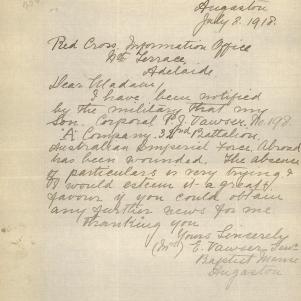 Angaston
July 8. 1918.
Red Cross Information Office
Nth Terrace
Adelaide
Dear Madam
I have been notified
by the military that my
Son. Corporal P. J. Vawser. No 198
"A" Company. 32nd Battalion,
Australian Imperial Force Abroad
has been wounded. The absence
of particulars is very trying &
I would esteem it a great
favour if you could obtain
any further news for me
thanking you
Yours Sincerely
(Mrs) E. Vawser Senr
Baptist Manse
Angaston